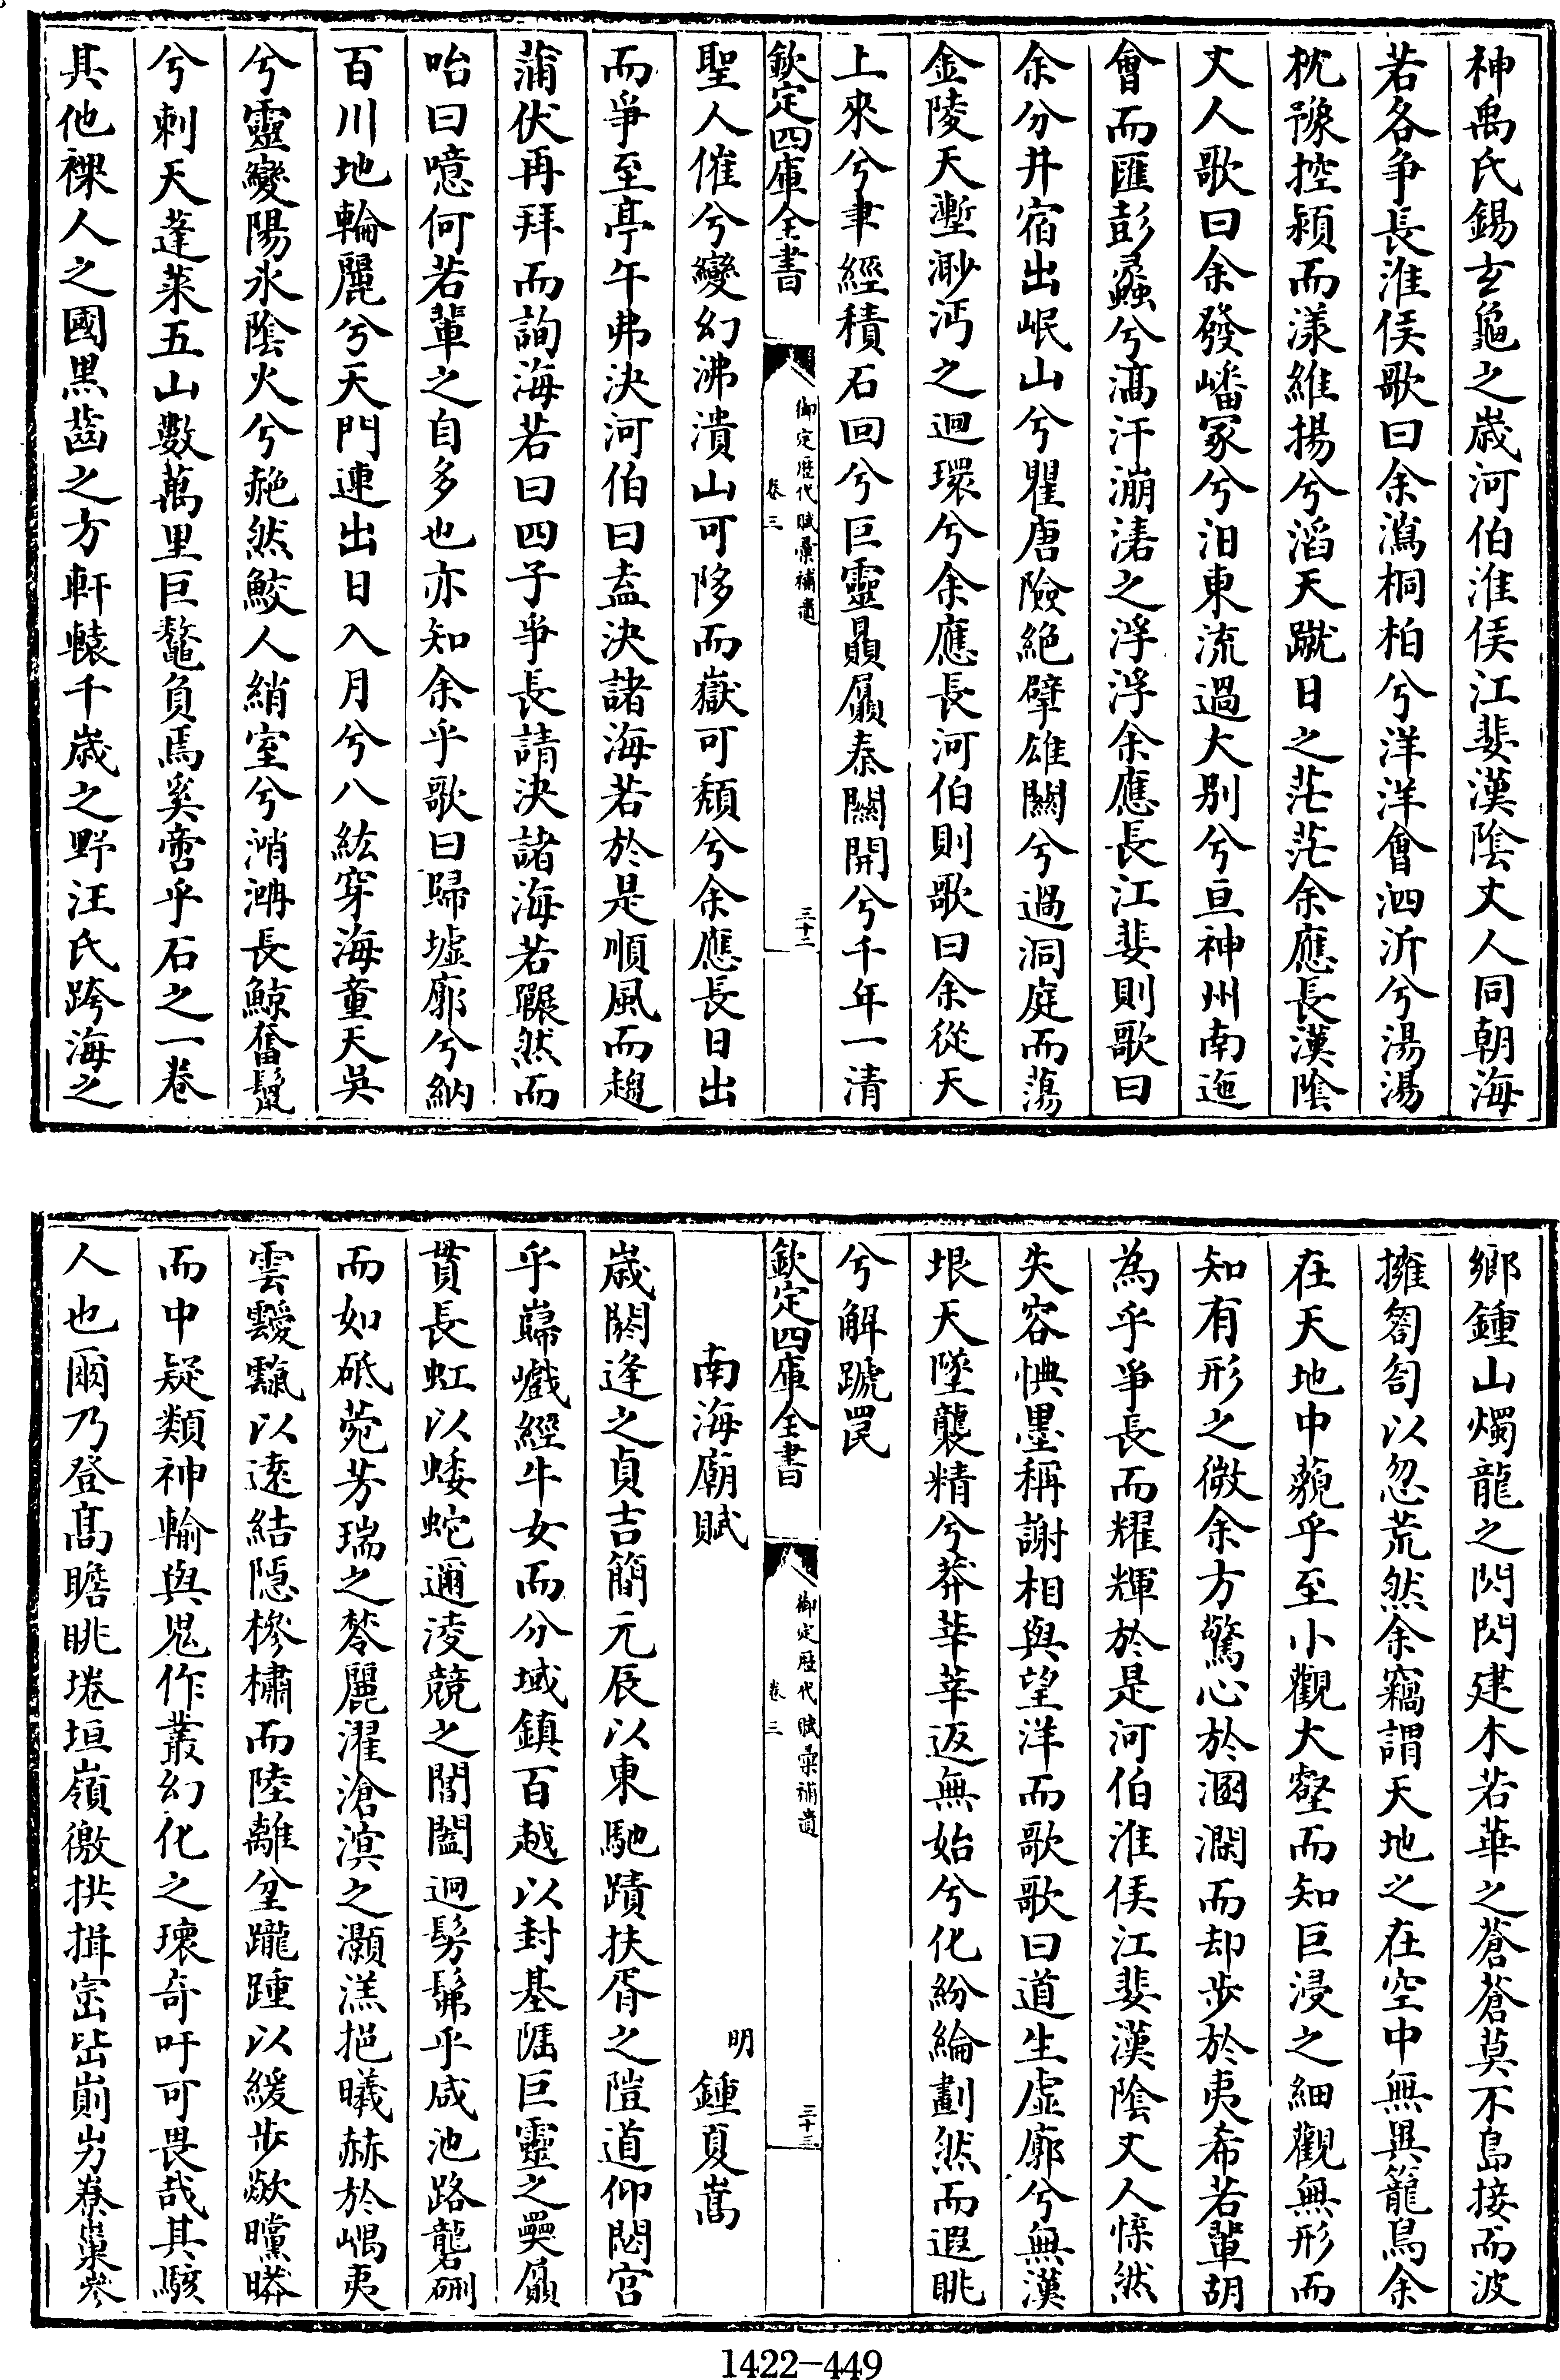 神禹氏錫玄龜之歲河伯淮侯江斐漢陰丈人同朝海
若各爭長淮侯歌曰余瀉桐柏兮洋洋會泗沂兮湯湯
枕豫控潁而漾維揚兮滔天蹴日之茫茫余應長漢陰
丈人歌曰余發嶓冢兮汨東流過大别兮亘神州南迤
會而匯彭蠡兮滈汗漰濤之浮浮余應長江斐則歌曰
余分井宿出岷山兮瞿唐險絶擘雄關兮過洞庭而蕩
金陵天塹渺沔之迴環兮余應長河伯則歌曰余從天
上來兮聿經積石回兮巨靈贔屭秦關開兮千年一清
欽定四庫全書
御定歷代賦彙補遺
卷三
三十二
聖人催兮變幻沸潰山可陊而嶽可頹兮余應長日出
而爭至亭午弗決河伯曰盍決諸海若於是順風而趨
蒲伏再拜而詢海若曰四子爭長請決諸海若囅然而
咍曰噫何若輩之自多也亦知余乎歌曰歸墟廓兮納
百川地輪麗兮天門連出日入月兮八紘穿海童天吳
兮靈變陽氷陰火兮赩然鮫人綃室兮㴖溿長鯨奮鬣
兮刺天蓬萊五山數萬里巨鼇負焉奚啻乎石之一卷
其他裸人之國黑齒之方軒轅千歲之野汪氏跨海之
鄉鍾山燭龍之閃閃建木若華之蒼蒼莫不島接而波
擁匒匌以忽荒然余竊謂天地之在空中無異籠鳥余
在天地中藐乎至小觀大壑而知巨浸之細觀無形而
知有形之微余方驚心於溷澖而却步於夷希若輩胡
為乎爭長而耀輝於是河伯淮侯江斐漢陰丈人悚然
失容惧墨稱謝相與望洋而歌歌曰道生虚廓兮無漢
垠天墜襲精兮莽莘莘返無始兮化紛綸劃然而遐眺
兮解踬罠
欽定四庫全書
御定歷代賦彙補遺
卷三
三十三
南海廟賦
明 鍾夏嵩
歲閼逢之貞吉簡元辰以東馳蹟扶胥之隑道仰閟宮
乎巋巇經牛女而分域鎮百越以封基㕒巨靈之奰屓
貫長虹以蜲蛇邇淩競之閶闔迴髣髴乎咸池路礱硎
而如砥菀芳瑞之棽麗濯滄溟之灝溔挹曦赫於嵎夷
雲靉靅以遠結隱槮橚而陸離坌蹝踵以緩步欻曭㬒
而中疑類神輸與鬼作叢幻化之瓌奇吁可畏哉其駭
人也爾乃登高瞻眺埢垣嶺徼拱揖崈岊崱屴嶚巢嵾
1422-449